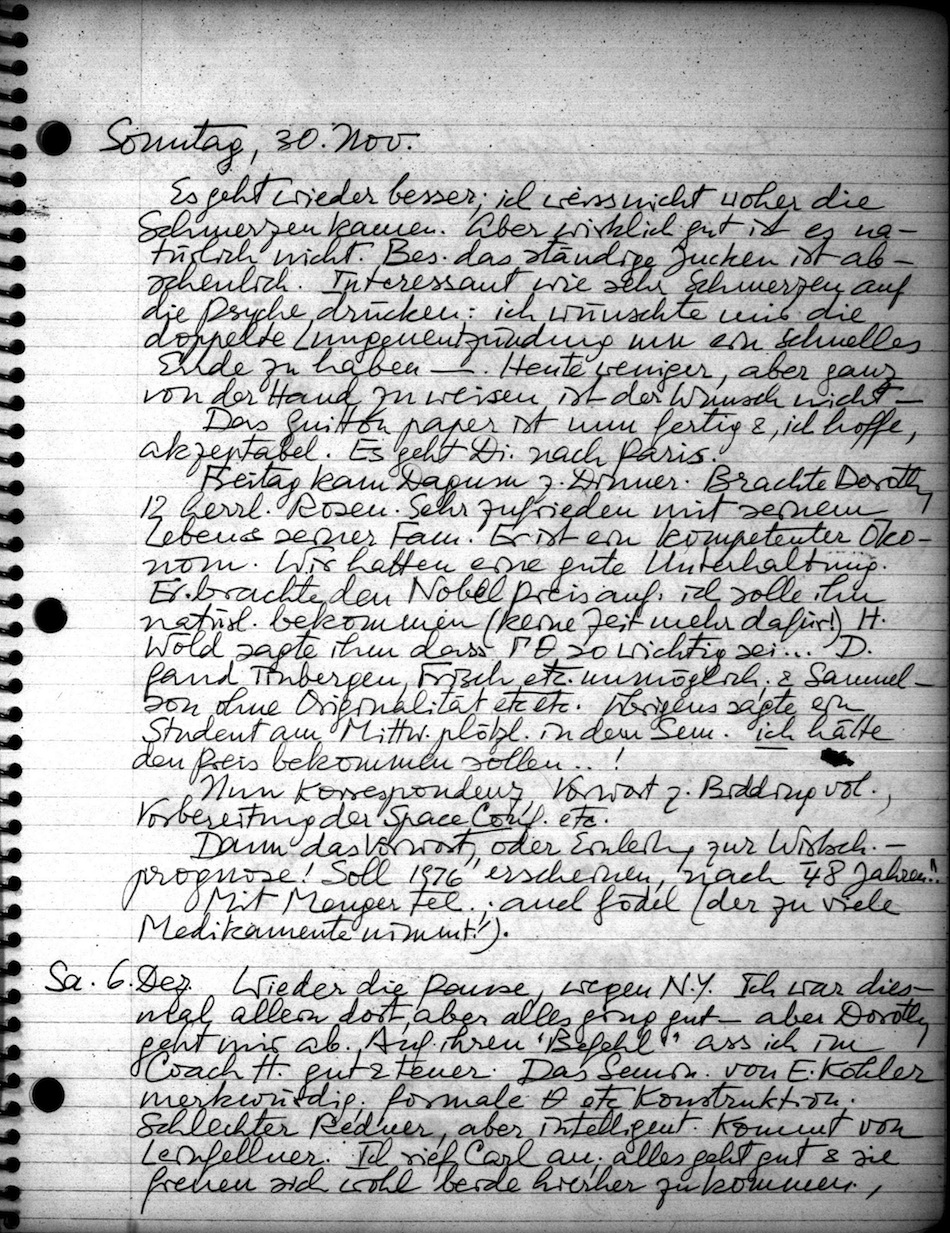 Sonntag, 30. Nov.
Es geht wieder besser; ich weiss nicht woher die
Schmerzen kamen. Aber wirklich gut ist es na-
türlich nicht. Bes. das ständige Jucken ist ab-
scheulich. Interessant wie sehr Schmerzen auf
die Psyche drücken: ich wünschte mir die
doppelte Lungenentzündung um ein schnelles
Ende zu haben —. Heute weniger, aber ganz
von der Hand zu weisen ist der Wunsch nicht —
Das Guitton paper ist nun fertig &, ich hoffe,
akzeptabel. Es geht Di. nach Paris.
Freitag kam Dagum z. Dinner. Brachte Dorothy
12 herrl. Rosen. Sehr zufrieden mit seinem
Leben & seiner Fam. Er ist ein kompetenter Öko-
nom. Wir hatten eine gute Unterhaltung.
Er brachte den Nobelpreis auf. ich solle ihn
natürl. bekommen (keine Zeit mehr dafür!) H.
Wold sagte ihm dass T θ so wichtig sei... D.
fand Tinbergen, Frisch etc. unmöglich, & Samuel-
son ohne Originalität etc etc. Übrigens sagte ein
Student am Mittw. plötzl. in dem Sem. ich hätte
den Preis bekommen sollen..!
Nun Korrespondenz, Vorwort z. Bidding vol.,
Vorbereitung der Space Conf. etc.
Dann das Vorwort, oder Einleitg. zur Wirtsch.-
prognose! Soll 1976 erscheinen, nach 48 Jahren!!
Mit Menger Tel.; auch Gödel (der zu viele
Medikamente nimmt!).
Sa. 6. Dez. Wieder die Pause, wegen N.Y. Ich war dies-
mal allein dort, aber alles ging gut — aber Dorothy
geht mir ab. Auf ihren "Befehl" ass ich im
Coach H. gut & teuer. Das Semin. von E. Köhler
merkwürdig, formale θ etc Konstruktion.
Schlechter Redner, aber intelligent. Kommt von
Leinfellner. Ich rief Carl an; alles geht gut & sie
freuen sich wohl beide hierher zu kommen,